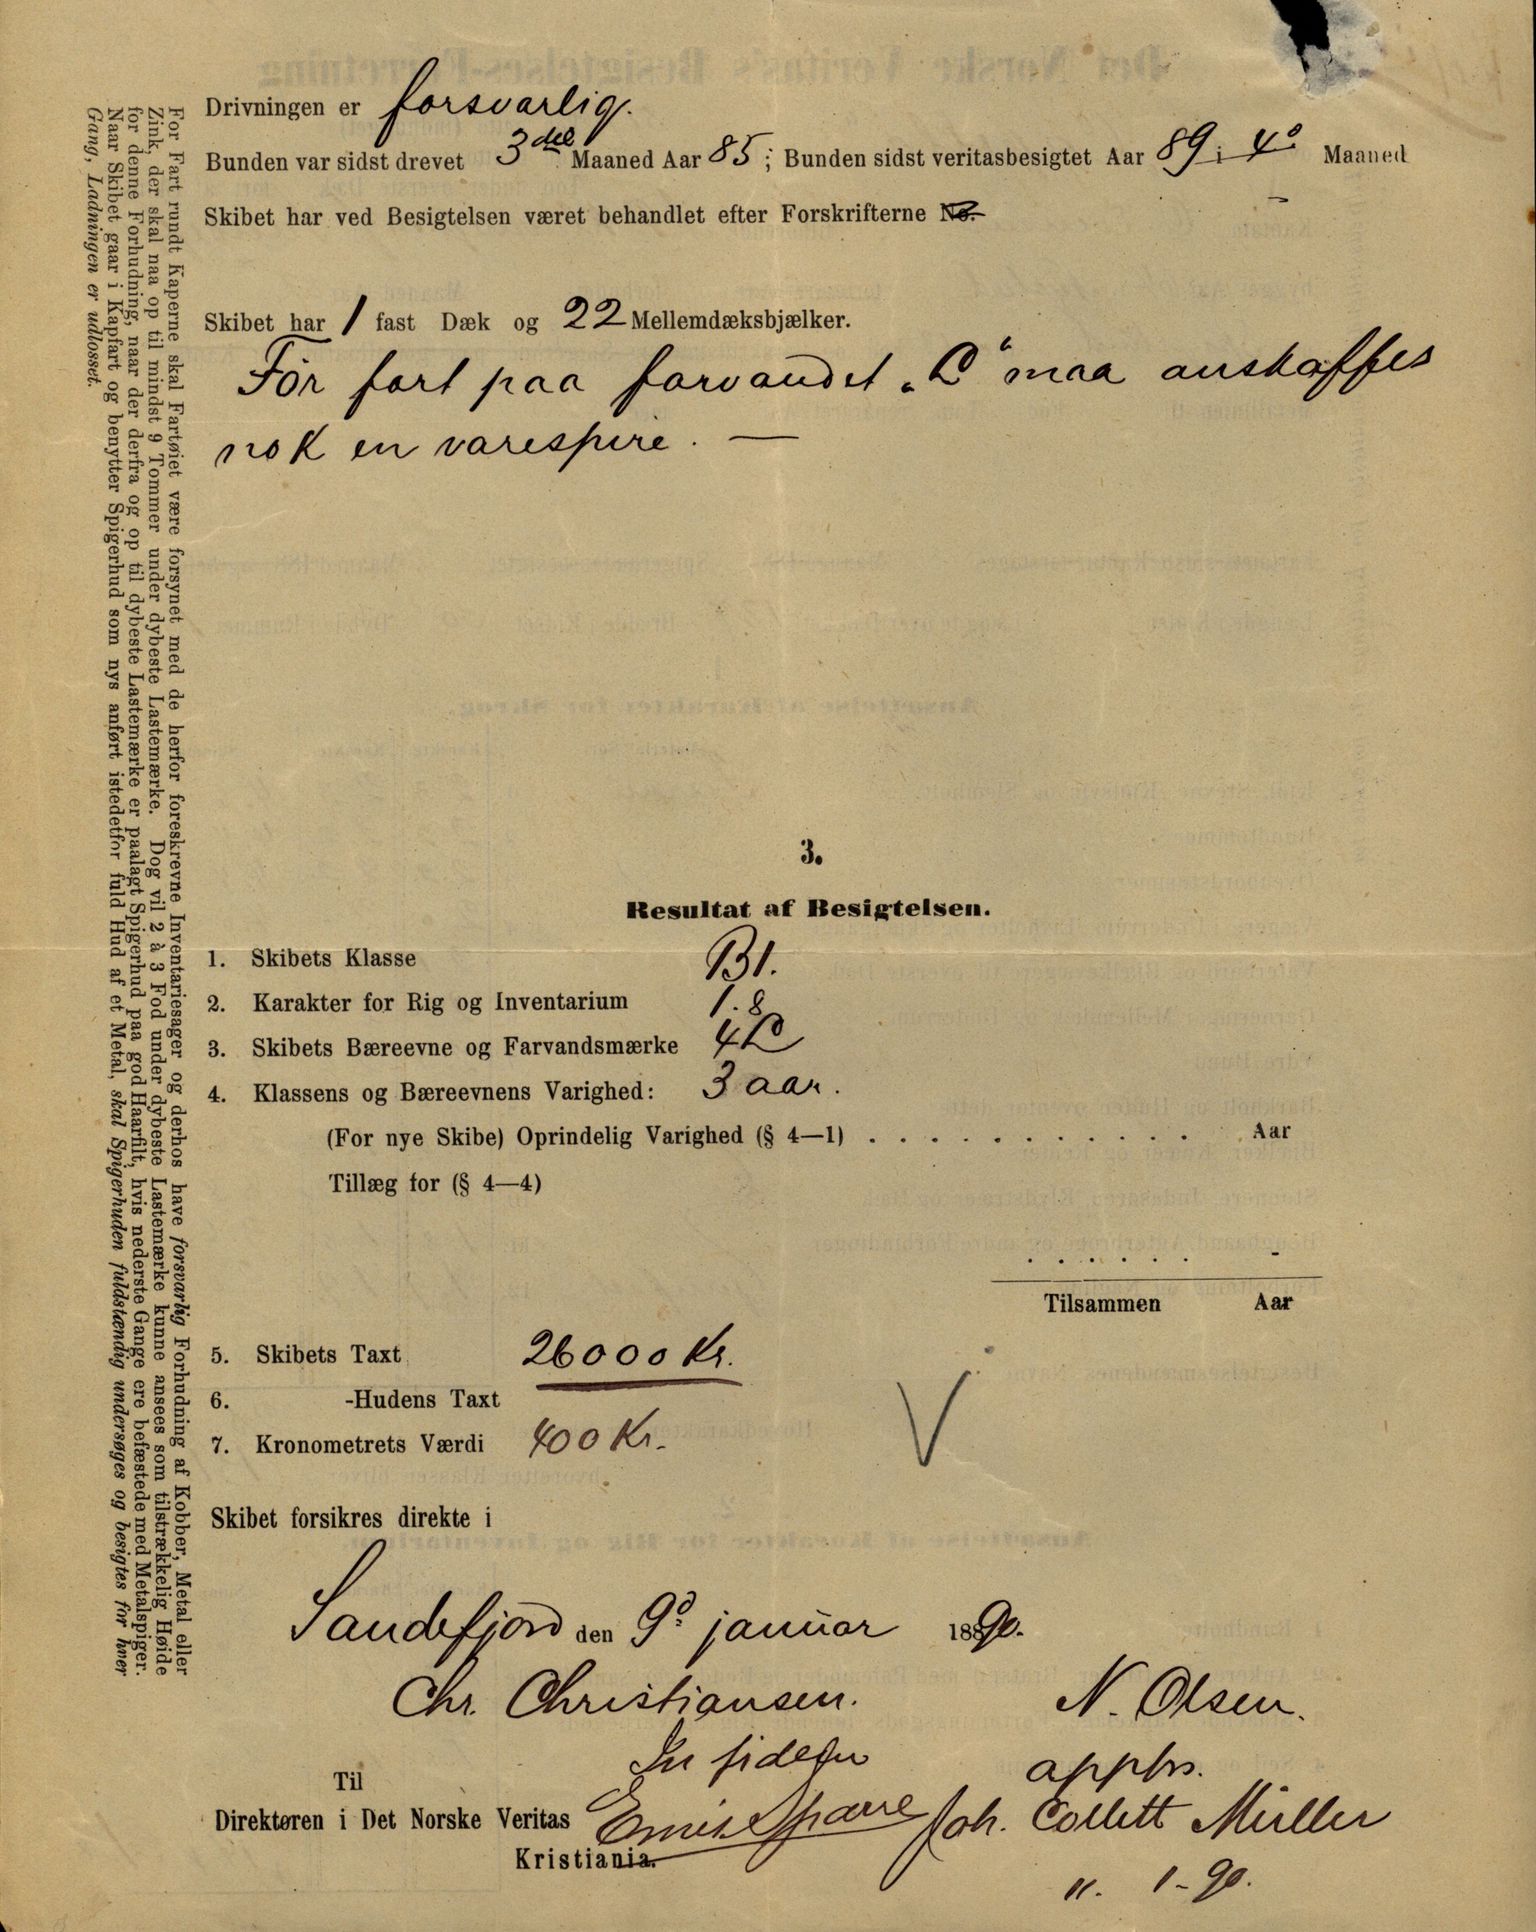 Drivningen er forsvarlig.
Bunden var sidst drevet 3die Maaned Aar 85; Bunden sidst veritasbesigtet Aar 89 i 4º Maaned
Skibet har ved Besigtelsen været behandlet efter Forskrifterne No.
Skibet har 1 fast Dæk og 22 Mellemdæksbjælker.
För fart paa farvandet „L“ maa anskaffes
nok en varespire. —
3.
Resultat af Besigtelsen.
1. Skibets Klasse B1.
2. Karakter for Rig og Inventarium 1.8
3. Skibets Bæreevne og Farvandsmærke 4L
4. Klassens og Bæreevnens Varighed: 3 aar.
(For nye Skibe) Oprindelig Varighed (§ 4—1) . . . . . . . . . . . . Aar
Tillæg for (§ 4—4)
. . . . . . -
Tilsammen Aar
5. Skibets Taxt 26000 Kr.
6. -Hudens Taxt
7. Kronometrets Værdi 400 Kr.
V
Skibet forsikres direkte i
Sandefjord den 9º januar 1890.
Chr. Christiansen. N. Olsen.
In fidem appbr.
Til
Direktøren i Det Norske Veritas Joh. Collett Müller
Kristiania.
11. 1-90.
For Fart rundt Kaperne skal Fartøiet være forsynet med de herfor foreskrevne Inventariesager og derhos have forsvarlig Forhudning af Kobber, Metal eller
Zink, der skal naa op til mindst 9 Tommer under dybeste Lastemærke. Dog vil 2 à 3 Fod under dybeste Lastemærke kunne ansees som tilstrækkelig Høide
for denne Forhudning, naar der derfra og op til dybeste Lastemærke er paalagt Spigerhud paa god Haarfilt, hvis nederste Gange ere befæstede med Metalspiger.
Naar Skibet gaar i Kapfart og benytter Spigerhud som nys anført istedetfor fuld Hud af et Metal, skal Spigerhuden fuldstændig undersøges og besigtes for hver
Gang, Ladningen er udlosset.